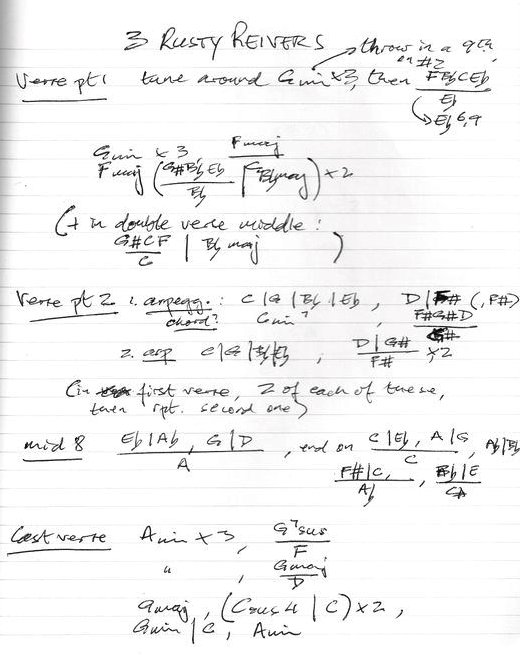 3 RUSTY REIVERS
throw in a 9th
on #2
Verse pt 1 tune around Gmin x3, then F Eb C Eb
Eb
Eb 6,9
Gmin x 3 Fmaj
Fmaj (G#BbEb | Bbmaj) x 2
Bb
(+ in double verse middle :
G#CF | Bb maj )
C
Verse pt 2 1. arpegg. : C | G | Bb | Eb , D | F# (, F#)
chord? Gmin7 , F#G#D
G#
2. arp C | G | Bb | Eb , D | G# x2
F#
(in first verse, 2 of each of these,
then rpt. second one)
mid 8 Eb | Ab , G | D , end on C | Eb , A | G , Ab | Eb
A C
F# | C , Bb | E
Ab
Last verse Amin x 3 , G7sus
F
" , Gmaj
D
Gmaj , (Csus4 | C) x 2 ,
Gmin | C , Amin